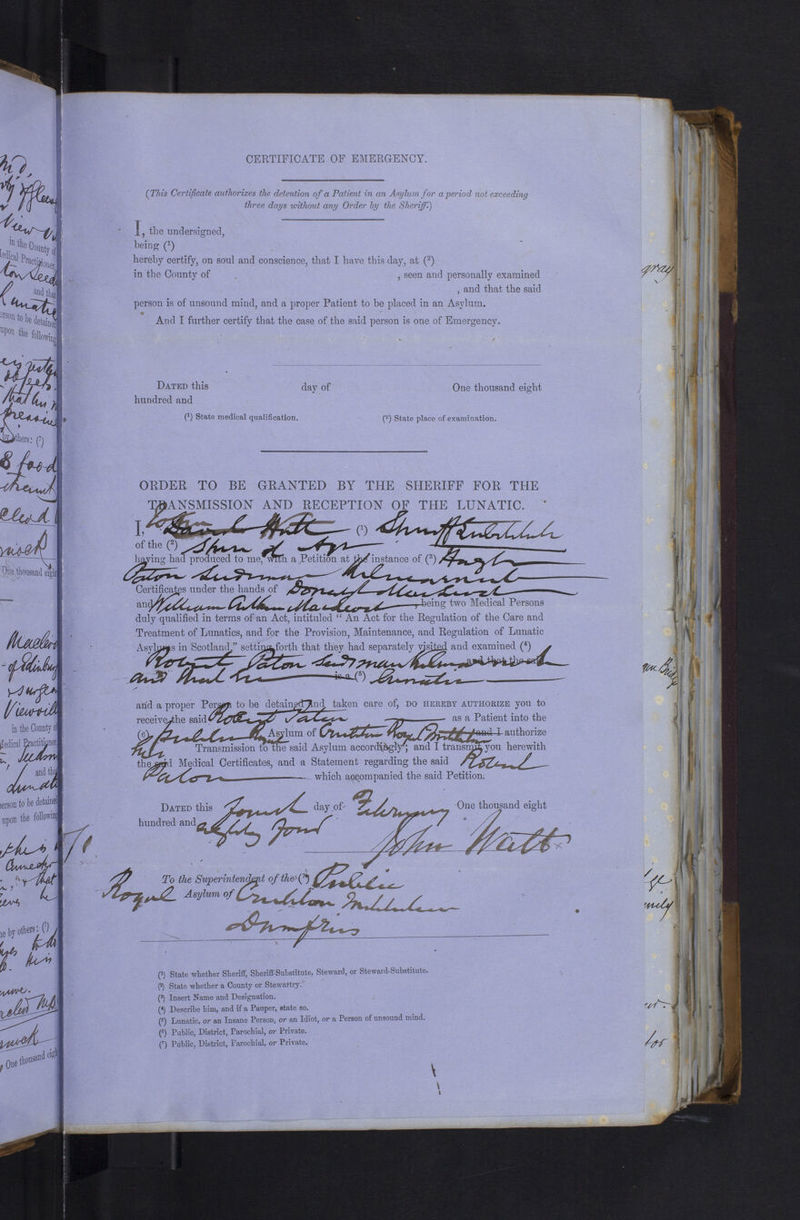 CERTIFICATE OF EMERGENCY.
(This Certificate authorizes the detention of a Patient in an Asylum for a period not exceeding
three days without any Order by the Sheriff.)
I, the undersigned,
being (¹)
hereby certify, on soul and conscience, that I have this day, at (²)
in the County of , seen and personally examined
, and that the said
person is of unsound mind, and a proper Patient to be placed in an Asylum.
And I further certify that the case of the said person is one of Emergency.
DATED this day of One thousand eight
hundred and
(¹) State medical qualification. (²) State place of examination.
ORDER TO BE GRANTED BY THE SHERIFF FOR THE
TRANSMISSION AND RECEPTION OF THE LUNATIC.
I, John Watt (¹) Sheriff Substitute
of the (²) Shire of Ayr
having had produced to me, with a Petition at the instance of (³) Hugh
Paton Seedsman Kilmarnock
Certificates under the hands of Donald Macleod
and William Arthur Macleod, being two Medical Persons
duly qualified in terms of an Act, intituled “An Act for the Regulation of the Care and
Treatment of Lunatics, and for the Provision, Maintenance, and Regulation of Lunatic
Asylums in Scotland,” setting forth that they had separately visited and examined (⁴)
Robert Paton Seedsman Kilmarnock and that the said
and that he is a (⁵) Lunatic
and a proper Person to be detained and taken care of, DO HEREBY AUTHORIZE you to
receive the said Robert Paton as a Patient into the
(⁶) Public Asylum of Crichton Royal Institution and I authorize
his Transmission to the said Asylum accordingly; and I transmit you herewith
the said Medical Certificates, and a Statement regarding the said Robert
Paton which accompanied the said Petition.
DATED this fourth day of February One thousand eight
hundred and eighty four
John Watt
To
To the Superintendent of the (⁷) Public
Royal Asylum of Crichton Institution
Dumfries
(¹) State whether Sheriff, Sheriff-Substitute, Steward, or Steward-Substitute.
(²) State whether a County or Stewartry.
(³) Insert Name and Designation.
(⁴) Describe him, and if a Pauper, state so.
(⁵) Lunatic, or an Insane Person, or an Idiot, or a Person of unsound mind.
(⁶) Public, District, Parochial, or Private.
(⁷) Public, District, Parochial, or Private.